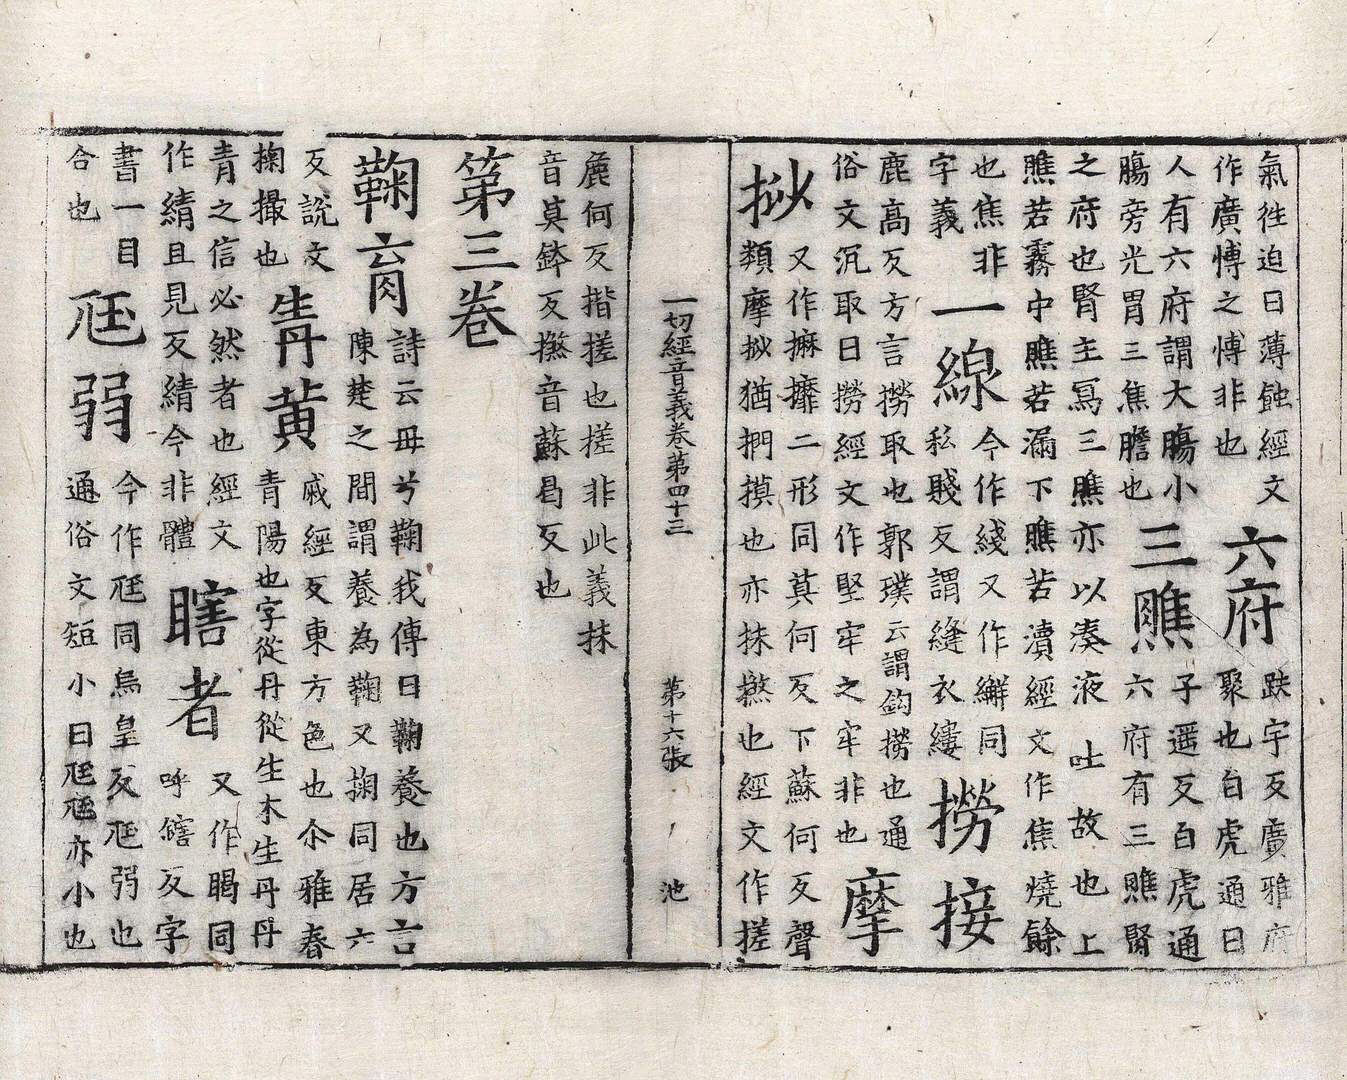 氣徃迫日薄蝕經文
作廣愽之愽非也
六府
跌宇反廣雅府
聚也白虎通曰
人有六府謂大膓小
膓旁光胃三焦膽也
三膲
子遥反白虎通
六府有三膲腎
之府也腎主寫三膲亦以湊液吐故也上
膲若霧中膲若漏下膲若瀆經文作焦燒餘
也焦非
字義
一線
今作綫又作同
私賤反謂縫衣縷
撈接
鹿髙反方言撈取也郭璞云謂鈎撈也通
俗文沉取曰撈經文作堅牢之牢非也
摩
挱
又作攠二形同莫何反下蘇何反聲
類摩挱猶捫摸也亦抹摋也經文作搓
一切經音義卷第四十三 第十六張 池
麁何反揩搓也搓非此義抹
音莫鉢反摋音蘇曷反也
第三卷
鞠育
詩云毋兮鞠我傳曰鞠養也方言
陳楚之間謂養為鞠又掬同居六
反說文
掬撮也
青黄
戚經反東方色也尒雅春
青陽也字從丹從生木生丹丹
青之信必然者也經文
作綪且見反綪今非體
瞎者
又作暍同
呼鎋反字
書一目
合也
尫弱
今作尫同烏皇反尫弱也
通俗文短小曰尫尫亦小也